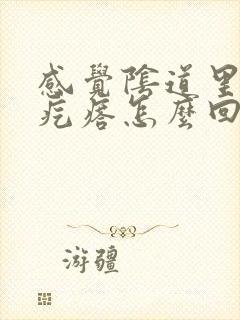 感覺陰道里
疙瘩怎麼回
游疆